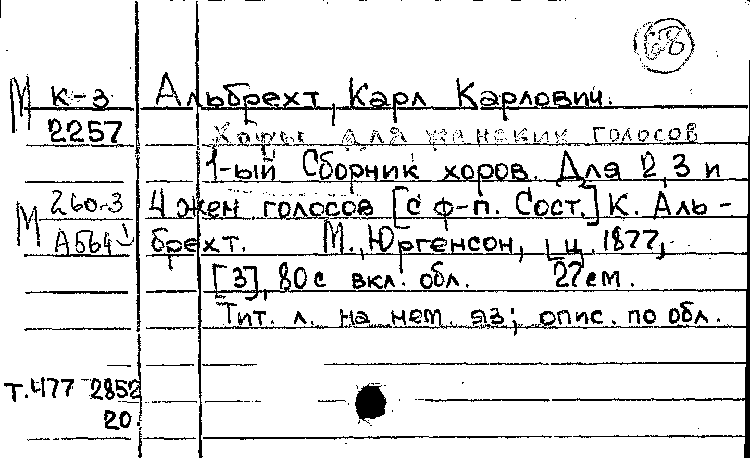 68
М К-3 Альбрехт, Карл Карлович.
2257 Хоры для женских голосов
1-ый Сборник хоров. Для 2, 3 и
М 260-3 4 жен голосов [с ф-п. Сост.] К. Аль-
А564 брехт. М., Юргенсон, ц. 1877,
[3], 80с вкл. обл. 27см.
Тит. л. на нем. яз; опис. по обл.
Т.477 2852
20.